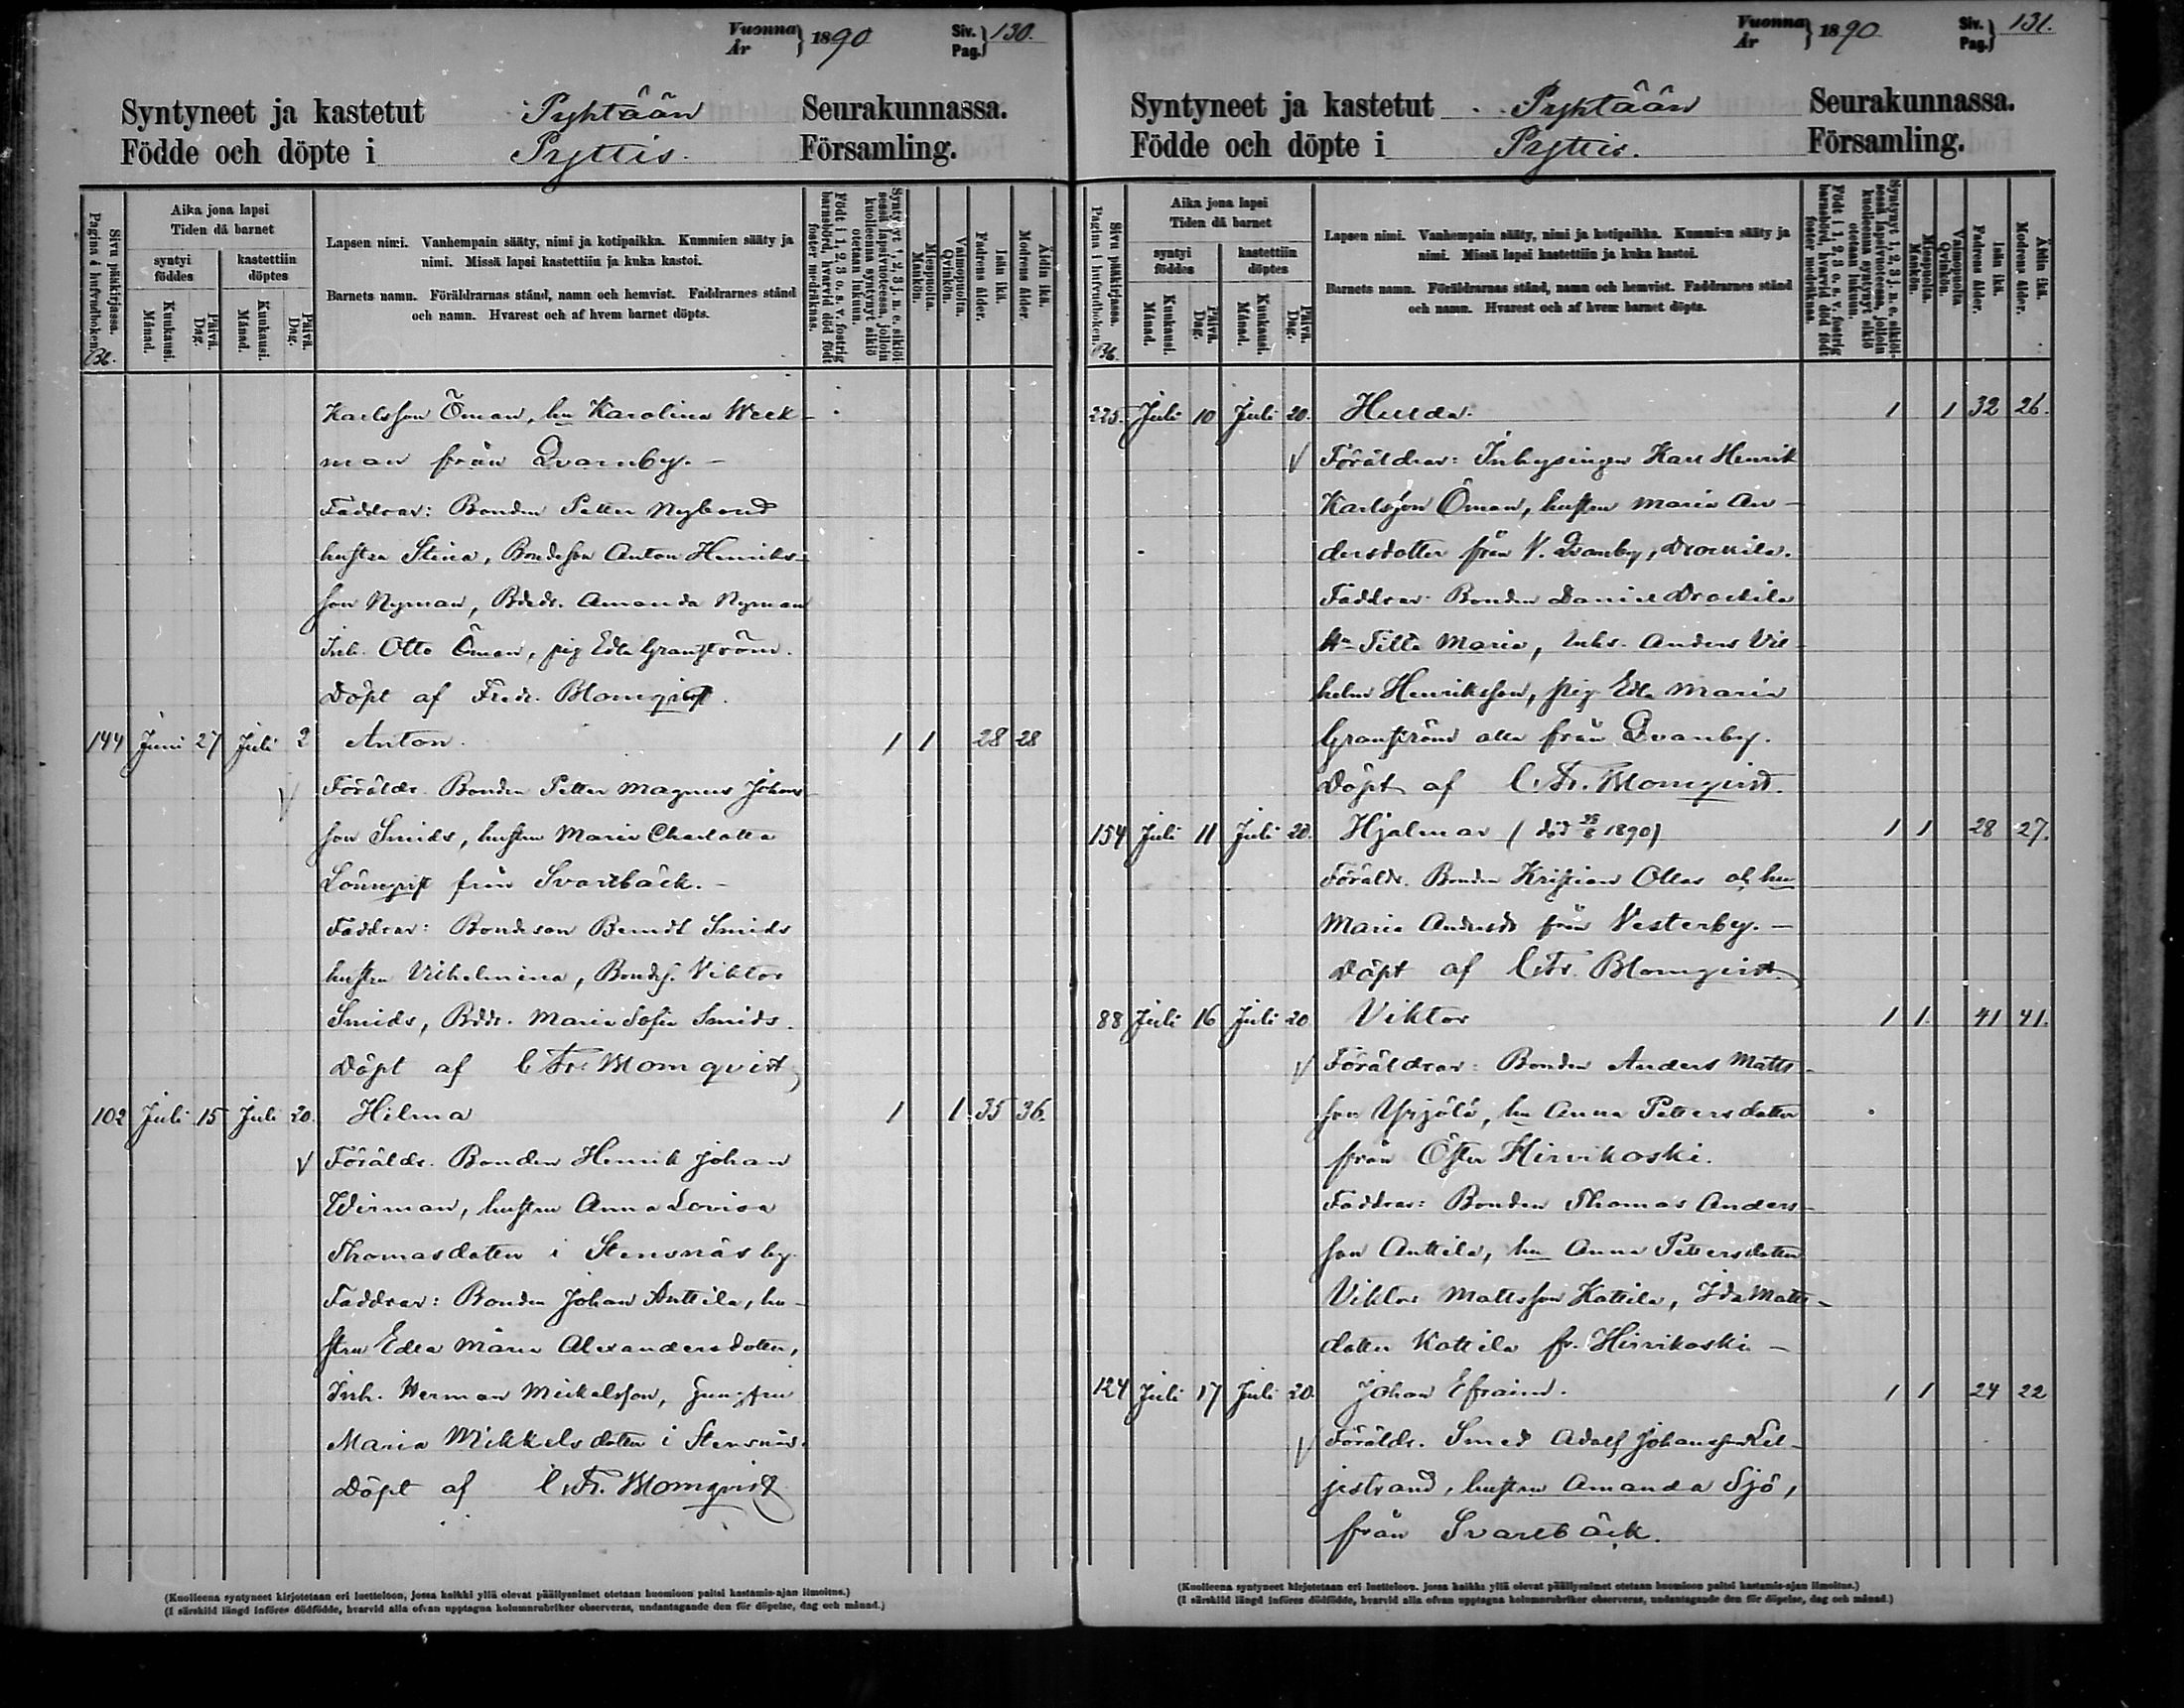 Vuonna
År } 1890 Siv.
Pag. } 130.
Syntyneet ja kastetut Pyhtään Seurakunnassa.
Födde och döpte i Pyttis. Församling.
Sivu pääkirjassa.
Pagina i hufvudboken. Bb.
Aika jona lapsi
Tiden då barnet
syntyi
föddes
kastettiin
döptes
Kuukausi.
Månad.
Päivä.
Dag.
Kuukausi.
Månad.
Päivä.
Dag.
Lapsen nimi. Vanhempain sääty, nimi ja kotipaikka. Kummien sääty ja
nimi. Missä lapsi kastettiin ja kuka kastoi.
Barnets namn. Föräldrarnas stånd, namn och hemvist. Faddrarnes stånd
och namn. Hvarest och af hvem barnet döpts.
Syntynyt 1, 2, 3 j. n. e. sikiöi-
sessä lapsivuoteessa, jolloin
kuolleenna syntynyt sikiö
otetaan lukuun.
Född i 1, 2, 3 o. s. v. fostrig
barnsbörd, hvarvid död född
foster medräknas.
Miespuolta.
Mankön.
Vaimopuolta.
Qvinkön.
Isän ikä.
Fadrens ålder.
Äidin ikä.
Modrens ålder.
Karlsson Öman, hu Karolina Weck-
man från Qvarnby. -
Faddrar: Bonden Petter Nybond
hustru Stina, Bondeson Anton Henriks-
son Nyman, Bdedr. Amanda Nyman
Inh. Otto Öman, pig Edla Granström.
Döpt af Fredr. Blomqvist.
144 Juni 27 Juli 2 Anton. 1 1 28 28
Föräldr. Bonden Petter Magnus Johans-
son Smids, hustru Maria Charlotta
Lönnqvist från Svartbäck. -
Faddrar: Bondeson Berndt Smids
hustru Vilhelmina, Bondes. Viktor
Smids, Bddr. Maria Sofia Smids.
Döpt af C. Fr. Blomqvist
102 Juli 15 Juli 20. Hilma 1 1 35 36.
Föräldr. Bonden Henrik Johan
Wirman, hustru Anna Lovisa
Thomasdotter i Stensnäs by.
Faddrar: Bonden Johan Anttila, hu-
stru Edla Maria Alexandersdotter,
Inh. Herman Mickelsson, Jungfru
Maria Mikkelsdotter i Stensnäs.
Döpt af C. Fr. Blomqvist
(Kuolleena syntyneet kirjotetaan eri luetteloon, jossa kaikki yllä olevat päällysnimet otetaan huomioon paitsi kastamis-ajan ilmoitus.)
(I särskild längd införes dödfödde, hvarvid alla ofvan upptagna kolumnrubriker observeras, undantagande den för döpelse, dag och månad.)
Vuonna
År } 1890 Siv.
Pag. } 131.
Syntyneet ja kastetut Pyhtään Seurakunnassa.
Födde och döpte i Pyttis. Församling.
Sivu pääkirjassa.
Pagina i hufvudboken. Bb.
Aika jona lapsi
Tiden då barnet
syntyi
föddes
kastettiin
döptes
Kuukausi.
Månad.
Päivä.
Dag.
Kuukausi.
Månad.
Päivä.
Dag.
Lapsen nimi. Vanhempain sääty, nimi ja kotipaikka. Kummien sääty ja
nimi. Missä lapsi kastettiin ja kuka kastoi.
Barnets namn. Föräldrarnas stånd, namn och hemvist. Faddrarnes stånd
och namn. Hvarest och af hvem barnet döpts.
Syntynyt 1, 2, 3 j. n. e. sikiöi-
sessä lapsivuoteessa, jolloin
kuolleenna syntynyt sikiö
otetaan lukuun.
Född i 1, 2, 3 o. s. v. fostrig
barnsbörd, hvarvid död född
foster medräknas.
Miespuolta.
Mankön.
Vaimopuolta
Qvinkön.
Isän ikä.
Fadrens ålder.
Äidin ikä.
Modrens ålder.
225. Juli 10 Juli 20. Hulda. 1 1 32 26.
Föräldrar: Inhysingen Karl Henrik
Karlsson Öman, hustru Maria An-
dersdotter från V. Qvarnby, Drockila.
Faddrar: Bonden Daniel Drockila
Hu Tilda Maria, Inhs. Anders Vil-
helm Henriksson, pig Edla Maria
Granström alla från Qvarnby.
Döpt af C. Fr. Blomqvist.
154 Juli 11 Juli 20. Hjalmar (död 25/8 1890) 1 1 28 27.
Föräldr. Bonden Kristian Ollas oh hu
Maria Andersdr från Vesterby. -
Döpt af C. Fr. Blomqvist
88 Juli 16 Juli 20 Viktor 1 1 41 41.
Föräldrar: Bonden Anders Matts-
son Yrjölä, hu Anna Pettersdotter
från Öster Hirvikoski.
Faddrar: Bonden Thomas Anders-
son Anttila, hu Anna Pettersdotter
Viktor Mattsson Kattila, Ida Matts-
dotter Kattila fr. Hirvikoski -
124 Juli 17 Juli 20. Johan Efraim. 1 1 24 22
Föräldr. Smed Adolf Johansson Lil-
jestrand, hustru Amanda Sjö,
från Svartbäck.
(Kuolleena syntyneet kirjotetaan eri luetteloon, jossa kaikki yllä olevat päällysnimet otetaan huomioon paitsi kastamis-ajan ilmoitus.)
(I särskild längd införes dödfödde, hvarvid alla ofvan upptagna kolumnrubriker observeras, undantagande den för döpelse, dag och månad.)